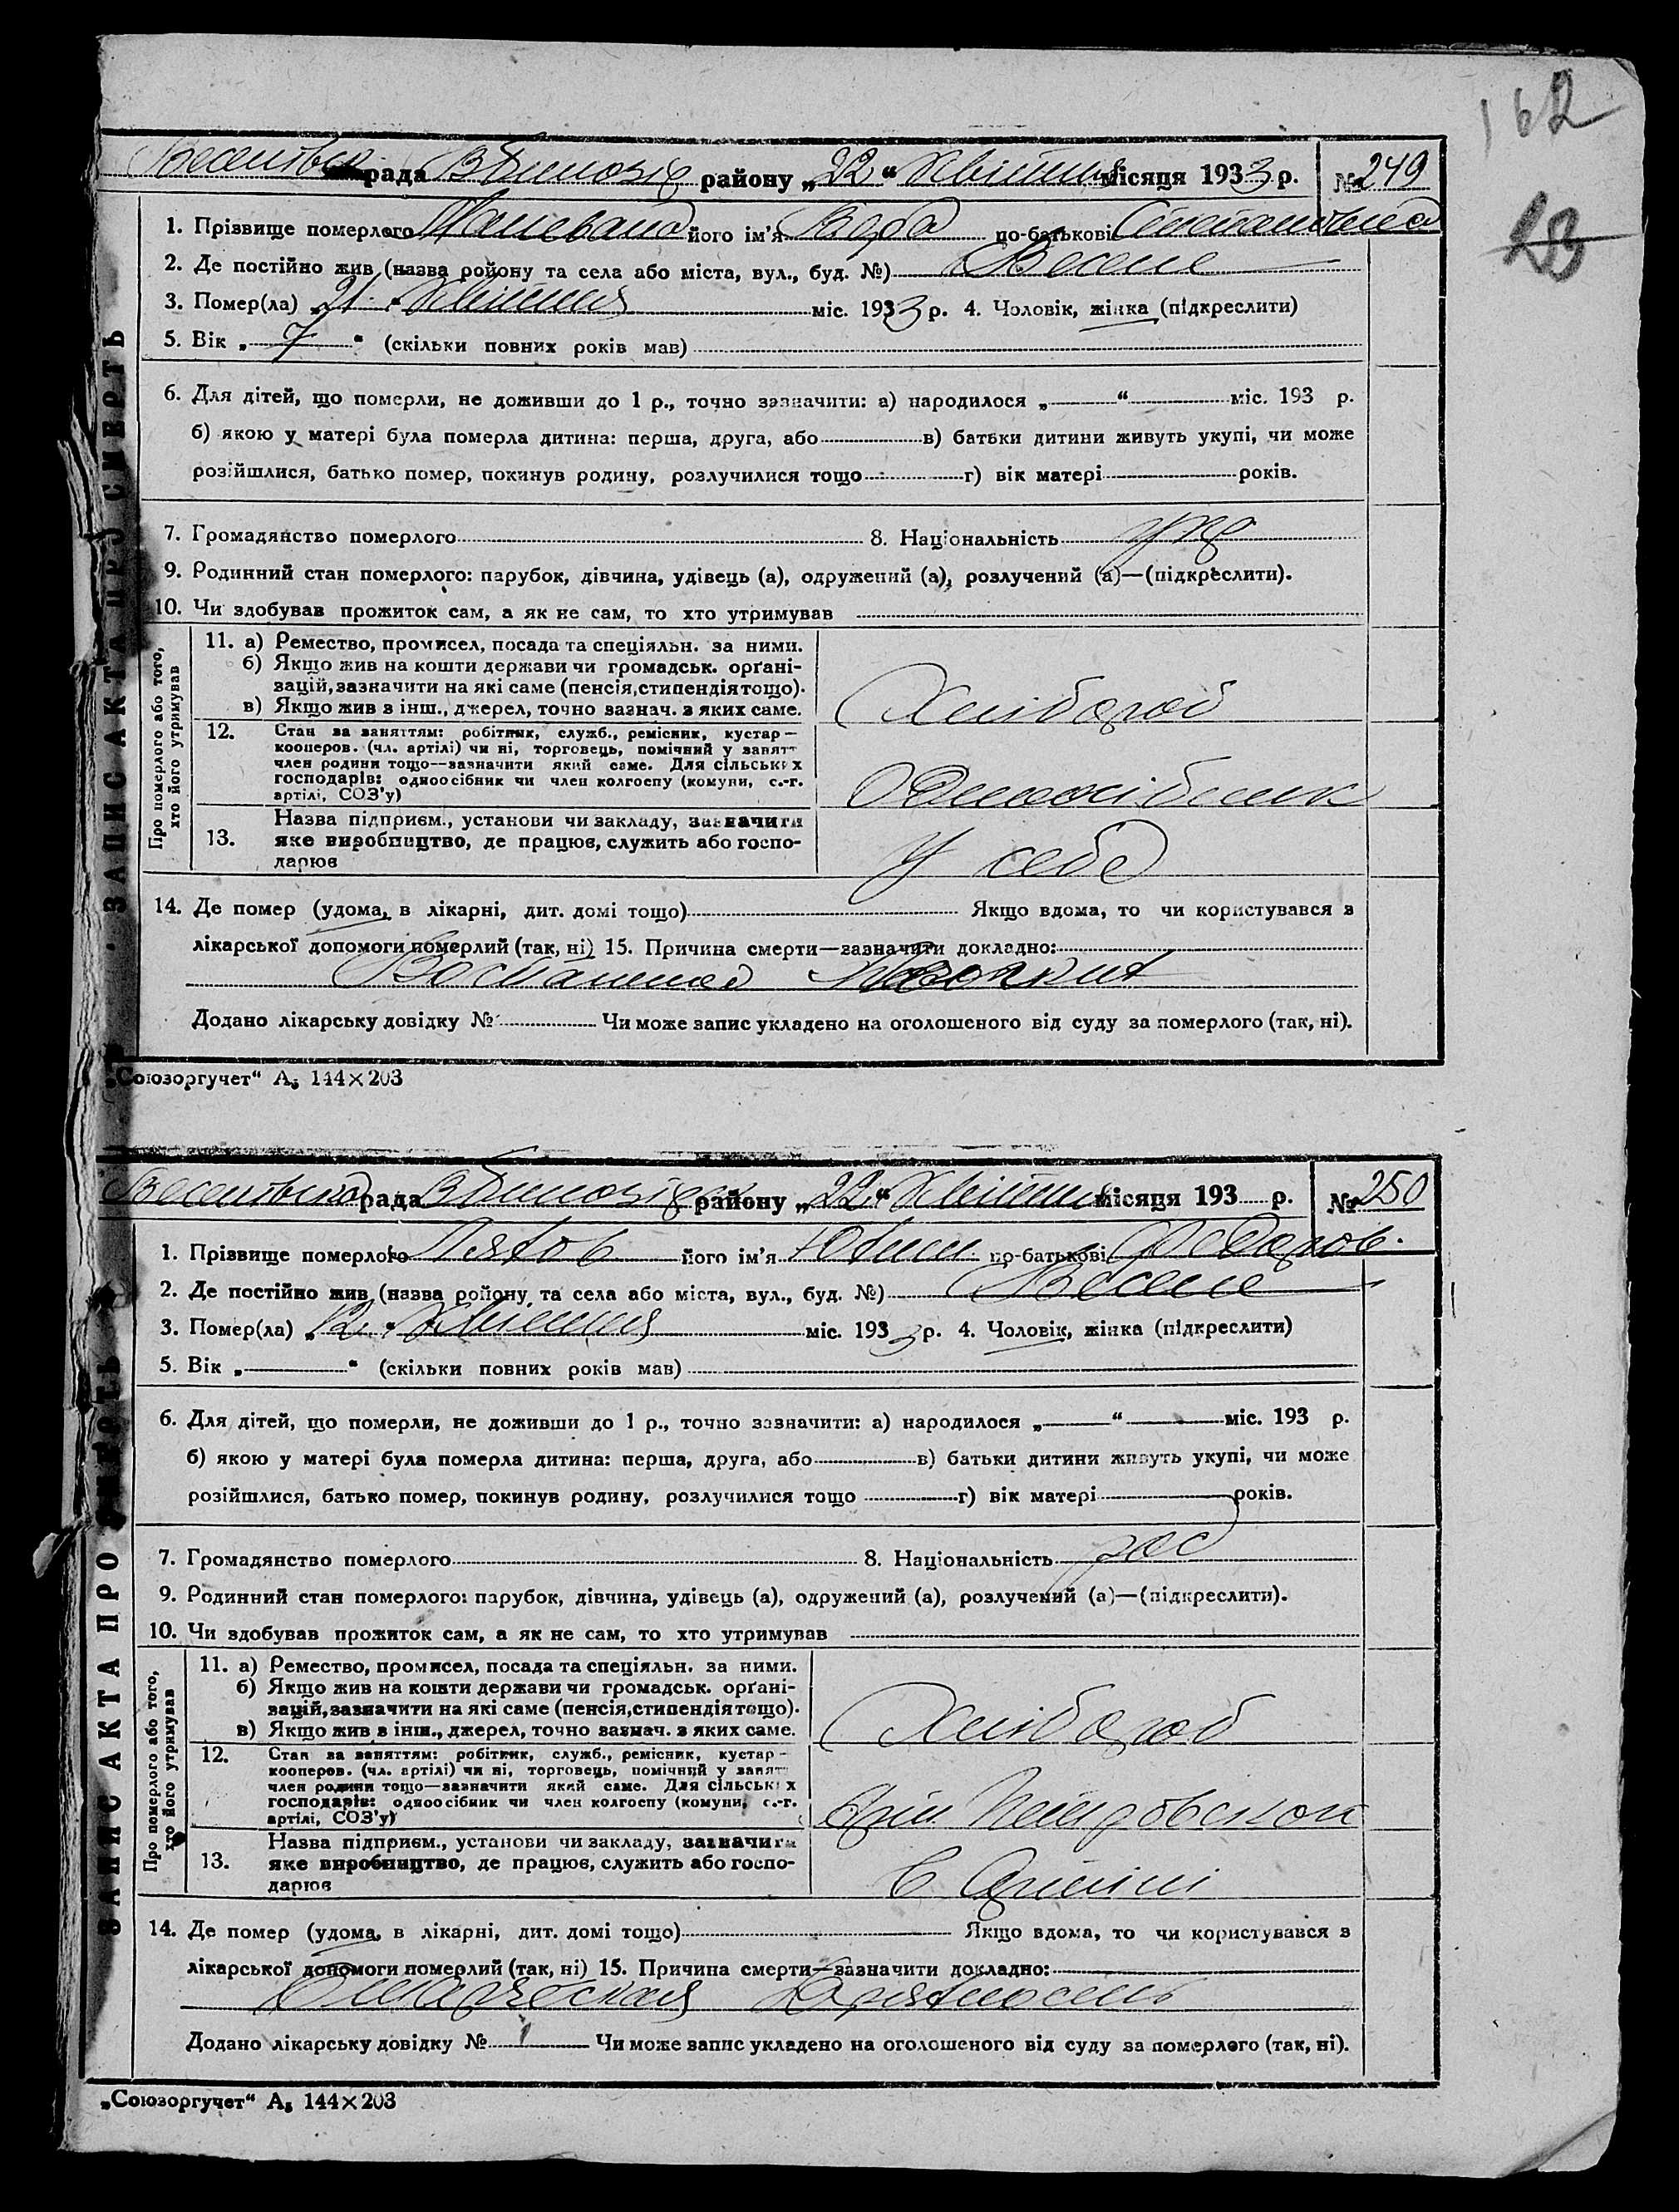 162
23
рада району „22“ Квітня місяця 1933 р. № 249
1. Прізвище померлого його ім'я Вера по-батькові Степановна
2. Де постійно жив (назва ройону та села або міста, вул., буд. №) Веселе
3. Помер(ла) „21 “ Квітня міс. 1933 р. 4. Чоловік, жінка (підкреслити)
5. Вік „ 7 “ (скільки повних років мав)
6. Для дітей, що померли, не доживши до 1 р., точно зазначити: а) народилося „ “ міс. 193 р.
б) якою у матері була померла дитина: перша, друга, або в) батьки дитини живуть укупі, чи може
розійшлися, батько помер, покинув родину, розлучилися тощо г) вік матері років.
7. Громадянство померлого 8. Національність укр
9. Родинний стан померлого: парубок, дівчина, удівець (а), одружений (а), розлучений (а)—(підкреслити).
10. Чи здобував прожиток сам, а як не сам, то хто утримував
ЗАПИС АКТА ПРО СМЕРТЬ
Про померлого або того,
хто його утримував
11. а) Ремество, промисел, посада та спеціяльн. за ними.
б) Якщо жив на кошти держави чи громадськ. орґані-
зацій, зазначити на які саме (пенсія, стипендія тощо).
в) Якщо жив з інш., джерел, точно зазнач. з яких саме.
Хлібороб
12. Стан за заняттям: робітник, служб., ремісник, кустар—
кооперов. (чл. артілі) чи ні, торговець, помічний у занятт
член родини тощо—зазначити який саме. Для сільських
господарів: одноосібник чи член колгоспу (комуни, с.-г.
артілі, СОЗ'у)
Одноосібник
13. Назва підприєм., установи чи закладу, зазначити
яке виробництво, де працює, служить або госпо-
дарює
У себе
14. Де помер (удома, в лікарні, дит. домі тощо) Якщо вдома, то чи користувався з
лікарської допомоги померлий (так, ні) 15. Причина смерти—зазначити докладно:
Додано лікарську довідку № Чи може запис укладено на оголошеного від суду за померлого (так, ні).
„Союзоргучет“ А5 144×203
рада району „22“ Квітня місяця 193 р. № 250
1. Прізвище померлого його ім'я по-батькові Федоров.
2. Де постійно жив (назва ройону та села або міста, вул., буд. №) Веселе
3. Помер(ла) „12 “ Квітня міс. 1933 р. 4. Чоловік, жінка (підкреслити)
5. Вік „ “ (скільки повних років мав)
6. Для дітей, що померли, не доживши до 1 р., точно зазначити: а) народилося „ “ міс. 193 р.
б) якою у матері була померла дитина: перша, друга, або в) батьки дитини живуть укупі, чи може
розійшлися, батько помер, покинув родину, розлучилися тощо г) вік матері років.
7. Громадянство померлого 8. Національність рос
9. Родинний стан померлого: парубок, дівчина, удівець (а), одружений (а), розлучений (а)—(підкреслити).
10. Чи здобував прожиток сам, а як не сам, то хто утримував
ЗАПИС АКТА ПРО СМЕРТЬ
Про померлого або того,
хто його утримував
11. а) Ремество, промисел, посада та спеціяльн. за ними.
б) Якщо жив на кошти держави чи громадськ. орґані-
зацій, зазначити на які саме (пенсія, стипендія тощо).
в) Якщо жив в інш., джерел, точно зазнач. з яких саме.
Хлібороб
12. Стан за заняттям: робітник, служб., ремісник, кустар—
кооперов. (чл. артілі) чи ні, торговець, помічний у занят
член родини тощо—зазначити який саме. Для сільських
господарів: одноосібник чи член колгоспу (комуни, с.-г.
артілі, СОЗ'у)
13. Назва підприєм., установи чи закладу, зазначити
яке виробництво, де працює, служить або госпо-
дарює
в Артілі
14. Де помер (удома, в лікарні, дит. домі тощо) Якщо вдома, то чи користувався з
лікарської допомоги померлий (так, ні) 15. Причина смерти—зазначити докладно:
Додано лікарську довідку № Чи може запис укладено на оголошеного від суду за померлого (так, ні).
„Союзоргучет“ А5 144×203